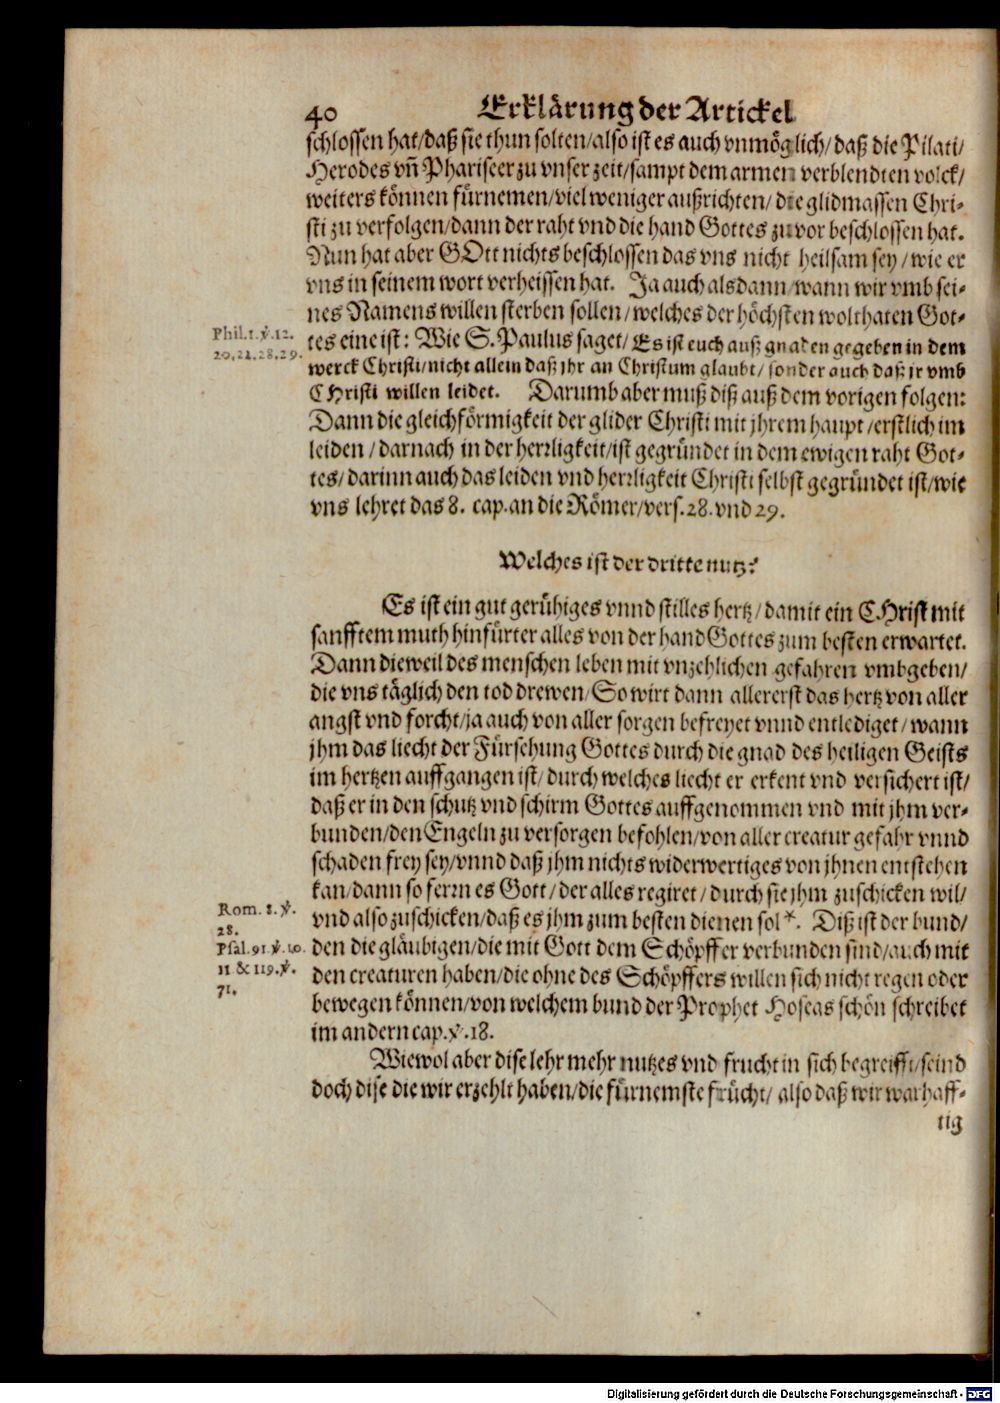 40 Erklärung der Artickel
schlossen hat/daß sie thun solten/also ist es auch vnmöglich/daß die Pilati/
Herodes vñ Phariseer zu vnser zeit/sampt dem armen verblendten volck/
weiters können fürnemen/viel weniger außrichten/die glidmassen Chri-
sti zu verfolgen/dann der raht vnd die hand Gottes zuvor beschlossen hat.
Nun hat aber GOtt nichts beschlossen das vns nicht heilsam sey/wie er
vns in seinem wort verheissen hat. Ja auch alsdann/wann wir vmb sei-
nes Namens willen sterben sollen/welches der höchsten wolthaten Got-
Phil.1.℣.12.
20.21.28.29.
tes eine ist: Wie S. Paulus saget/Es ist euch auß gnaden gegeben in dem
werck Christi/nicht allein daß jhr an Christum glaubt/sonder auch daß jr vmb
CHristi willen leidet. Darumb aber muß diß auß dem vorigen folgen:
Dann die gleichförmigkeit der glider Christi mit jhrem haupt/erstlich im
leiden/darnach in der herrligkeit/ist gegründet in dem ewigen raht Got-
tes/darinn auch das leiden vnd herrligkeit Christi selbst gegründet ist/wie
vns lehret das 8. cap. an die Römer/vers.28.vnd 29.
Welches ist der dritte nutz?
Es ist ein gut gerühiges vnnd stilles hertz/damit ein CHrist mit
sanfftem muth hinfürter alles von der hand Gottes zum besten erwartet.
Dann dieweil des menschen leben mit vnzehlichen gefahren vmbgeben/
die vns täglich den tod drewen/So wirt dann allererst das hertz von aller
angst vnd forcht/ja auch von aller sorgen befreyet vnnd entlediget/wann
jhm das liecht der Fürsehung Gottes durch die gnad des heiligen Geists
im hertzen auffgangen ist/durch welches liecht er erkent vnd versichert ist/
daß er in den schutz vnd schirm Gottes auffgenommen vnd mit jhm ver-
bunden/den Engeln zu versorgen befohlen/von aller creatur gefahr vnnd
schaden frey sey/vnnd daß jhm nichts widerwertiges von jhnen entstehen
kan/dann so ferrn es Gott/der alles regiret/durch sie jhm zuschicken wil/
Rom.8.℣.
28.
Psal.91.℣.10.
11 & 119.℣.
71.
vnd also zuschicken/daß es jhm zum besten dienen sol*. Diß ist der bund/
den die gläubigen/die mit Gott dem Schöpffer verbunden sind/auch mit
den creaturen haben/die ohne des Schöpffers willen sich nicht regen oder
bewegen können/von welchem bund der Prophet Hoseas schön schreibet
im andern cap.℣.18.
Wiewol aber dise lehr mehr nutzes vnd frucht in sich begreifft/seind
doch dise die wir erzehlt haben/die fürnemste früchtt/also daß wir warhaff-
tig
Digitalisierung gefördert durch die Deutsche Forschungsgemeinschaft - DFG